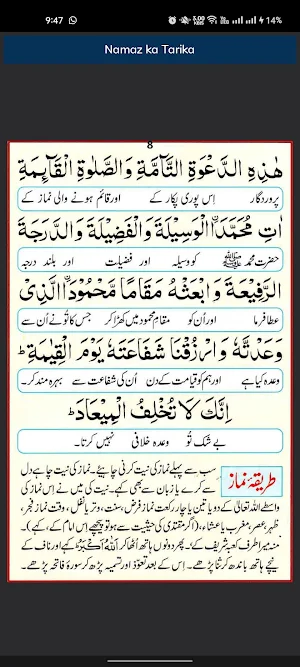 9:47
14%
Namaz ka Tarika
8
هٰذِهِ الدَّعْوَةِ التَّآمَّةِ وَالصَّلٰوةِ الْقَآئِمَةِ
پروردگار اِس پوری پکار کے اور قائم ہونے والی نماز کے
اٰتِ مُحَمَّدَاِۨ الْوَسِيْلَةَ وَالْفَضِيْلَةَ وَالدَّرَجَةَ
حضرت محمد ﷺ کو وسیلہ اور فضیلت اور بلند درجہ
الرَّفِيْعَةَ وَابْعَثْهُ مَقَامًا مَّحْمُوْدَاِۨ الَّذِىْ
عطا فرما اور اُن کو مقامِ محمود میں کھڑا کر جس کا تُو نے اُن سے
وَعَدْتَّهٗ وَارْزُقْنَا شَفَاعَتَهٗ يَوْمَ الْقِيٰمَةِ ؕ
وعدہ کیا ہے اور ہم کو قیامت کے دن اُن کی شفاعت سے بہرہ مند کر۔
اِنَّكَ لَا تُخْلِفُ الْمِيْعَادَ ؕ
بے شک تُو وعدہ خلافی نہیں کرتا۔
طریقۂ نماز
سب سے پہلے نماز کی نیت کرنی چاہیے۔ نماز کی نیت چاہے دل
سے کرے یا زبان سے بھی کہے۔ نیت کی میں نے اِس نماز کی
واسطے اللہ تعالیٰ کے دو یا تین یا چار رکعت نماز فرض، سنت، وتر یا نفل، وقت نماز فجر،
ظہر، عصر، مغرب یا عشاء، (اگر مقتدی کی حیثیت سے ہو تو پیچھے اِس امام کے، کہے)۔
منہ میرا طرف کعبہ شریف کے۔ پھر دونوں ہاتھ اُٹھا کر اَللّٰهُ اَكْبَرُ کہے اور ناف کے
نیچے ہاتھ باندھ کر ثنا پڑھے۔ اِس کے بعد تعوّذ اور تسمیہ پڑھ کر سورۂ فاتحہ پڑھے۔